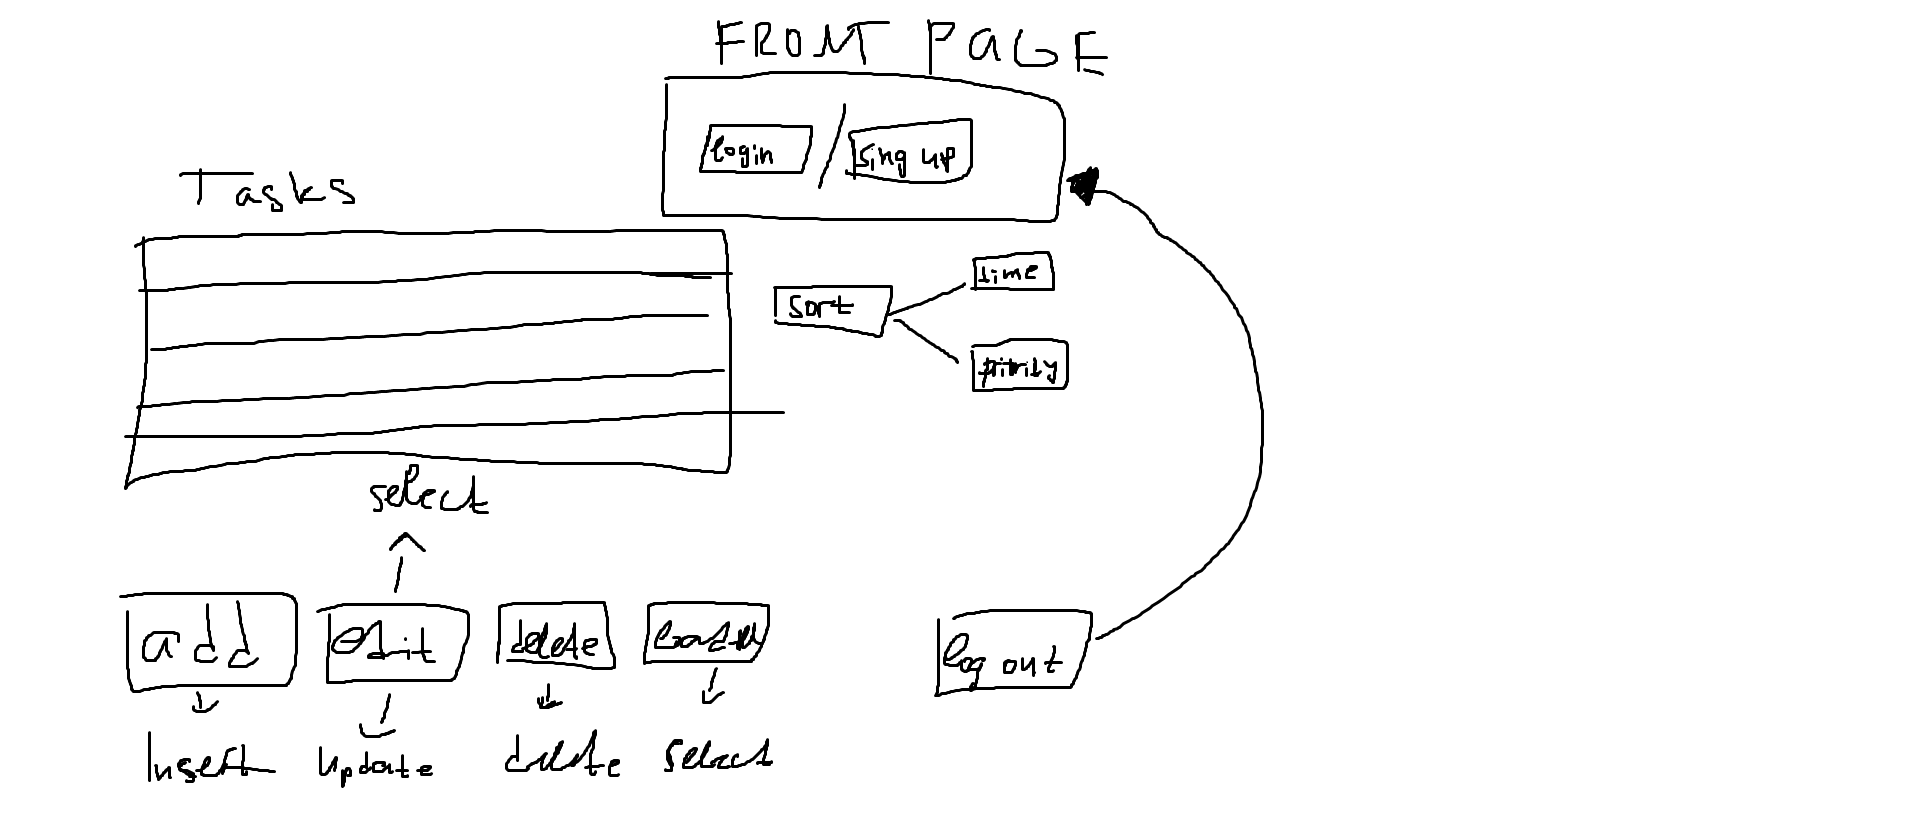 FRONT PAGE
login / sing up
Tasks
time
sort
select
add
edit
delete
log out
Insert
update
delete
select